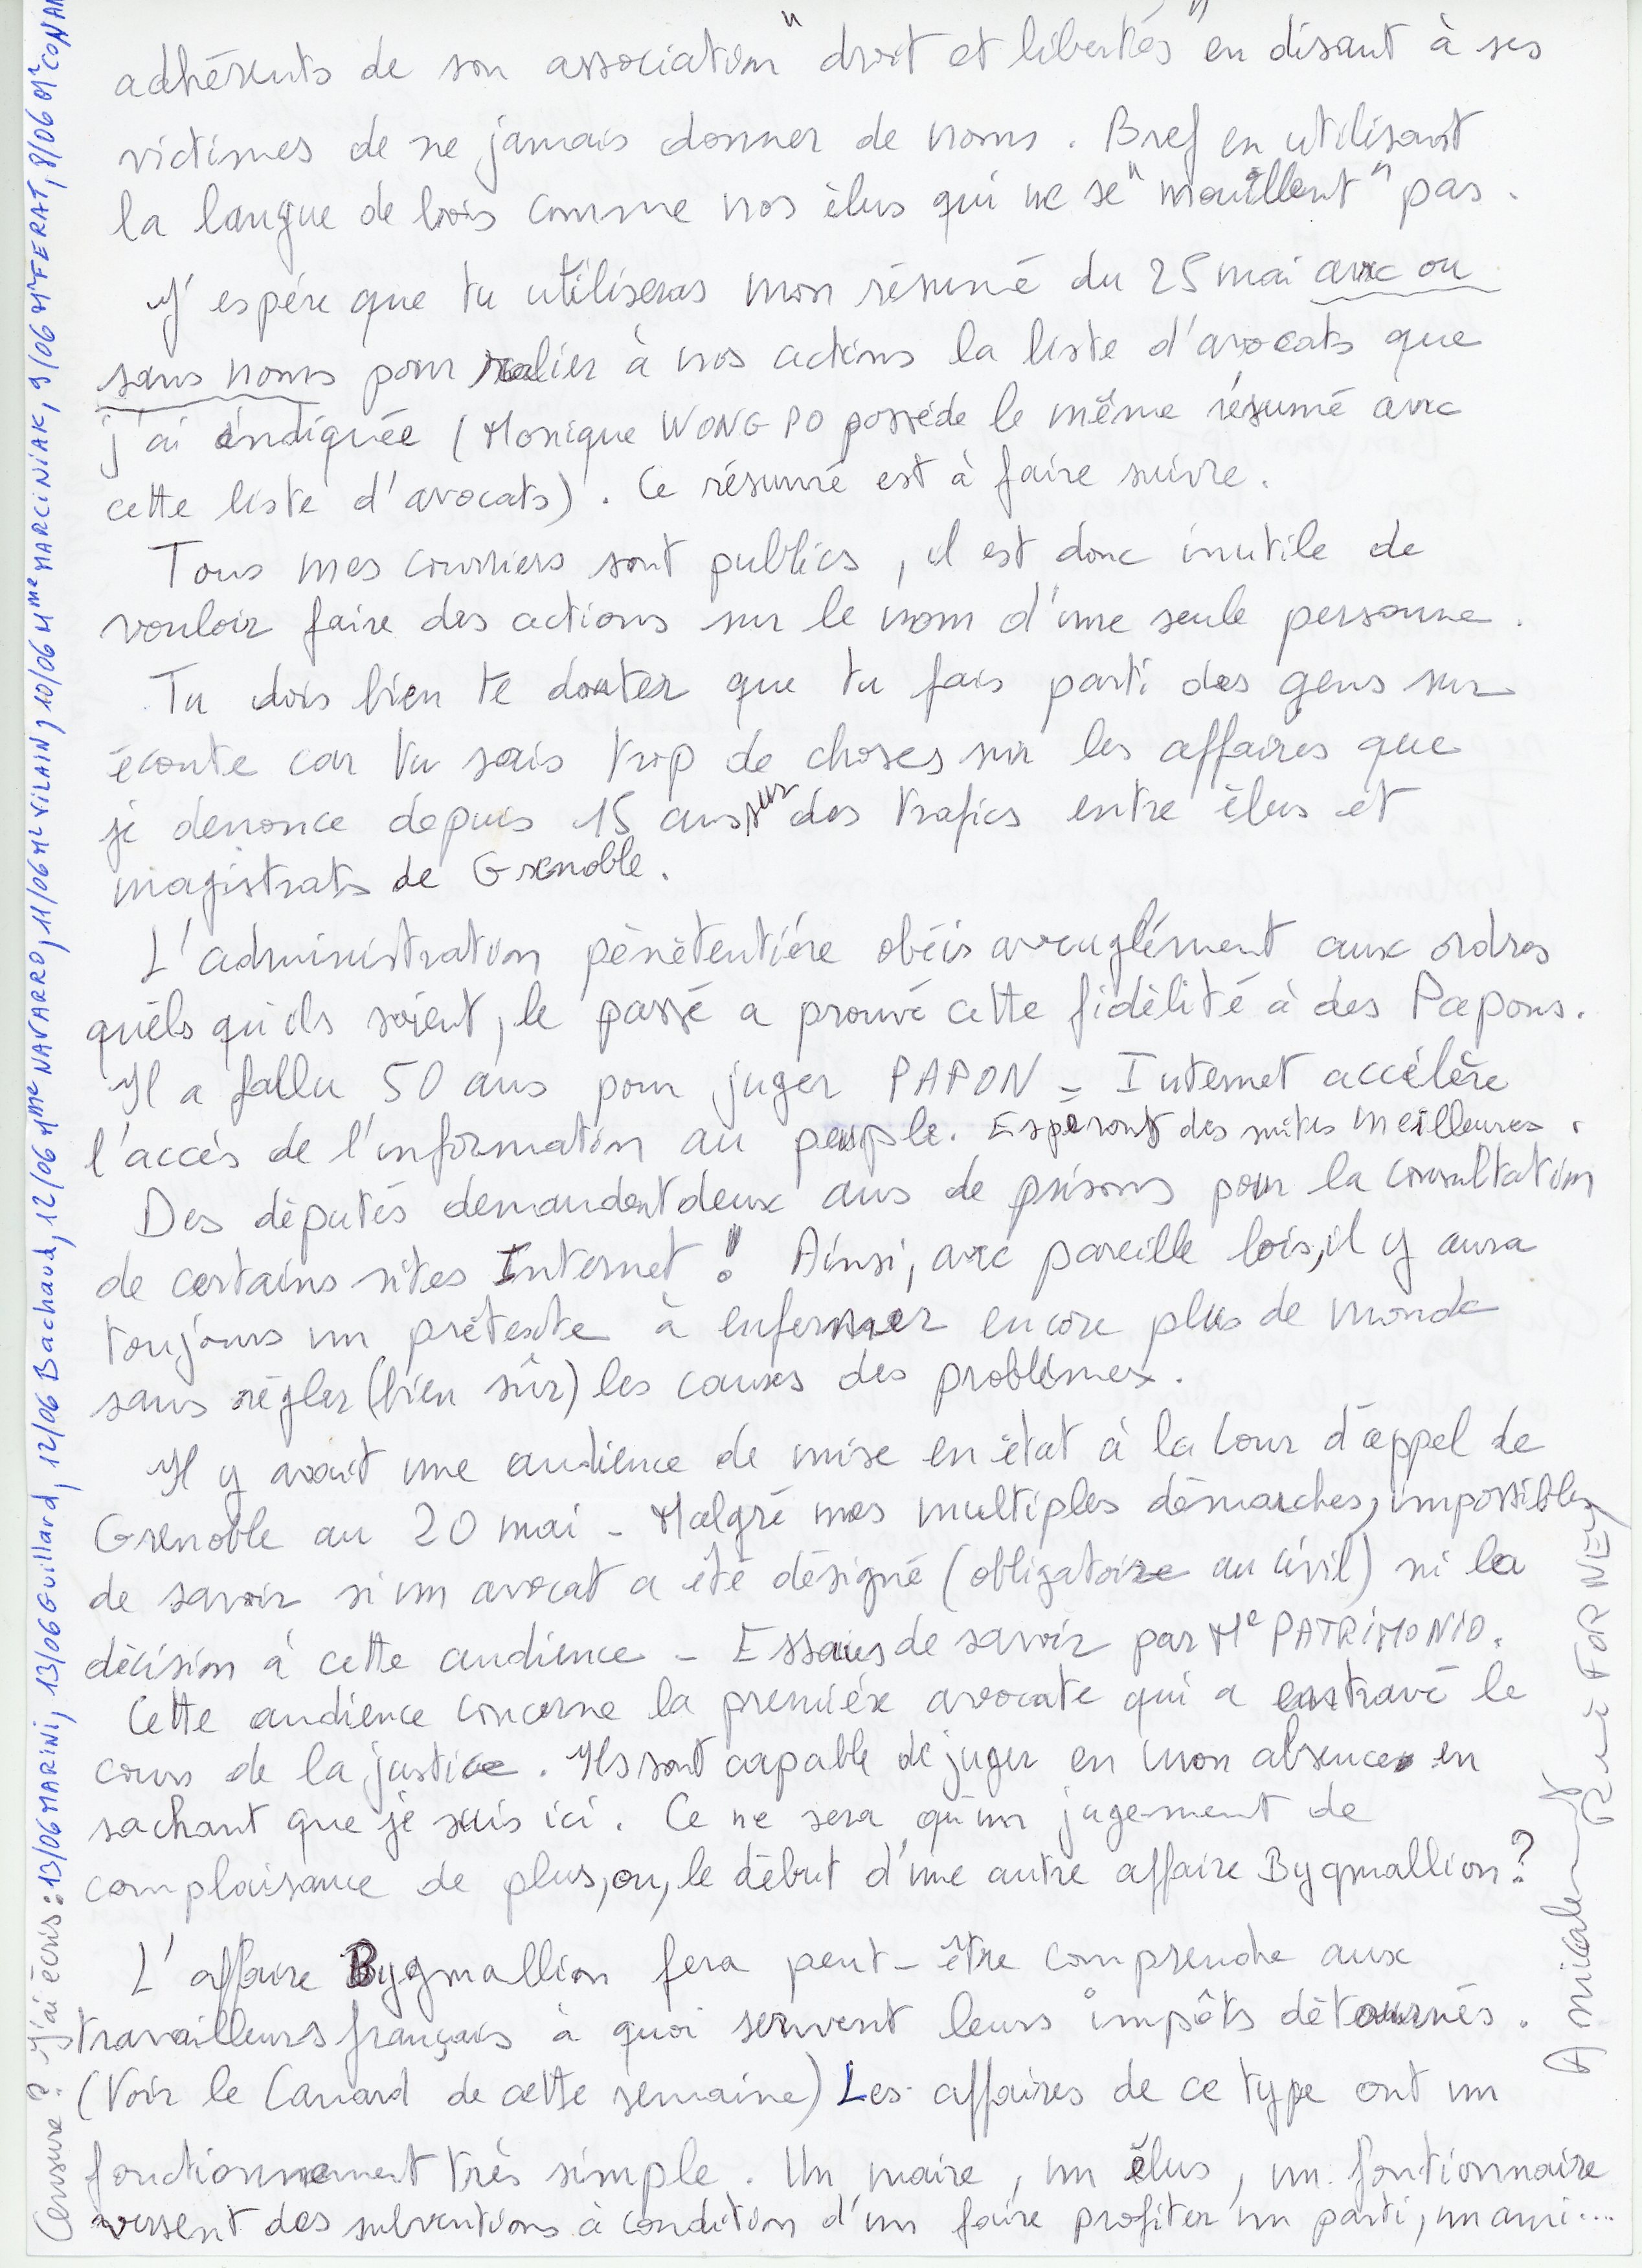 adhérents de son association "droit et libertés" en disant à ses
victimes de ne jamais donner de noms. Bref en utilisant
la langue de bois comme nos élus qui ne se "mouillent" pas.
J'espére que tu utiliseras mon résumé du 25 mai avec ou
sans noms pour ralier à nos actions la liste d'avocats que
j'ai indiquée (Monique WONG PO posséde le même résumé avec
cette liste d'avocats). Ce résumé est à faire suivre.
Tous mes courriers sont publics, il est donc inutile de
vouloir faire des actions sur le nom d'une seule personne.
Tu dois bien te douter que tu fais parti des gens sur
écoute car tu sais trop de choses sur les affaires que
je dénonce depuis 15 ans sur des trafics entre élus et
magistrats de Grenoble.
L'administration pénétentiére obéis aveuglément aux ordres
quels qu'ils soient, le passé a prouvé cette fidélité à des Papons.
Il a fallu 50 ans pour juger PAPON - Internet accélère
l'accès de l'information au peuple. Espéront des suites meilleures.
Des députés demandent deux ans de prisons pour la consultation
de certains sites Internet! Ainsi, avec pareille lois, il y aura
toujours un prétexte à enfermer encore plus de monde
sans régler (bien sûr) les causes des problèmes.
Il y avait une audience de mise en état à la Cour d'appel de
Grenoble au 20 mai - Malgré mes multiples démarches, impossibles
de savoir si un avocat a été désigné (obligatoire au civil) ni la
décision à cette audience - Essaies de savoir par Me PATRIMONIO.
Cette audience concerne la première avocate qui a entravé le
cours de la justice. Ils sont capable de juger en mon absence en
sachant que je suis ici. Ce ne sera qu'un jugement de
complaisance de plus, ou, le début d'une autre affaire Bygmallion?
L'affaire Bygmallion fera peut-être comprendre aux
travailleurs français à quoi servent leurs impôts détournés.
(Voir le Canard de cette semaine) Les affaires de ce type ont un
fonctionnement très simple. Un maire, un élus, un fontionnaire
versent des subventions à condition d'un faire profiter un parti, un ami....
Amicalement
René FORNEY
Censure? J'ai écris: 13/06 MARINI, 13/06 Guillard, 12/06 Bachaud, 12/06 Mme NAVARRO, 11/06 Mr VILAIN, 10/06 Mme MARCINIAK, 9/06 Mr FERAT, 8/06 Mr